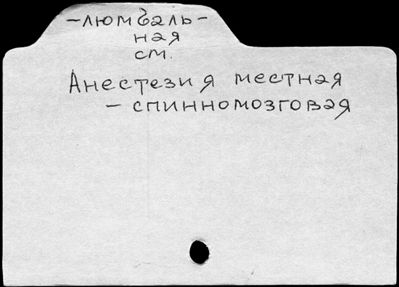 -люмбаль-
ная
см.
Анестезия местная
- спинномозговая